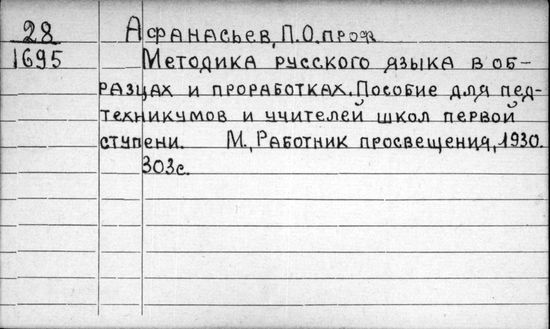 28 Афанасьев, П.О. проф
1695 Методика русского языка в об-
разцах и проработках. Пособие для пед-
техникумов и учителей школ первой
ступени. М., Работник просвещения, 1930.
303с.